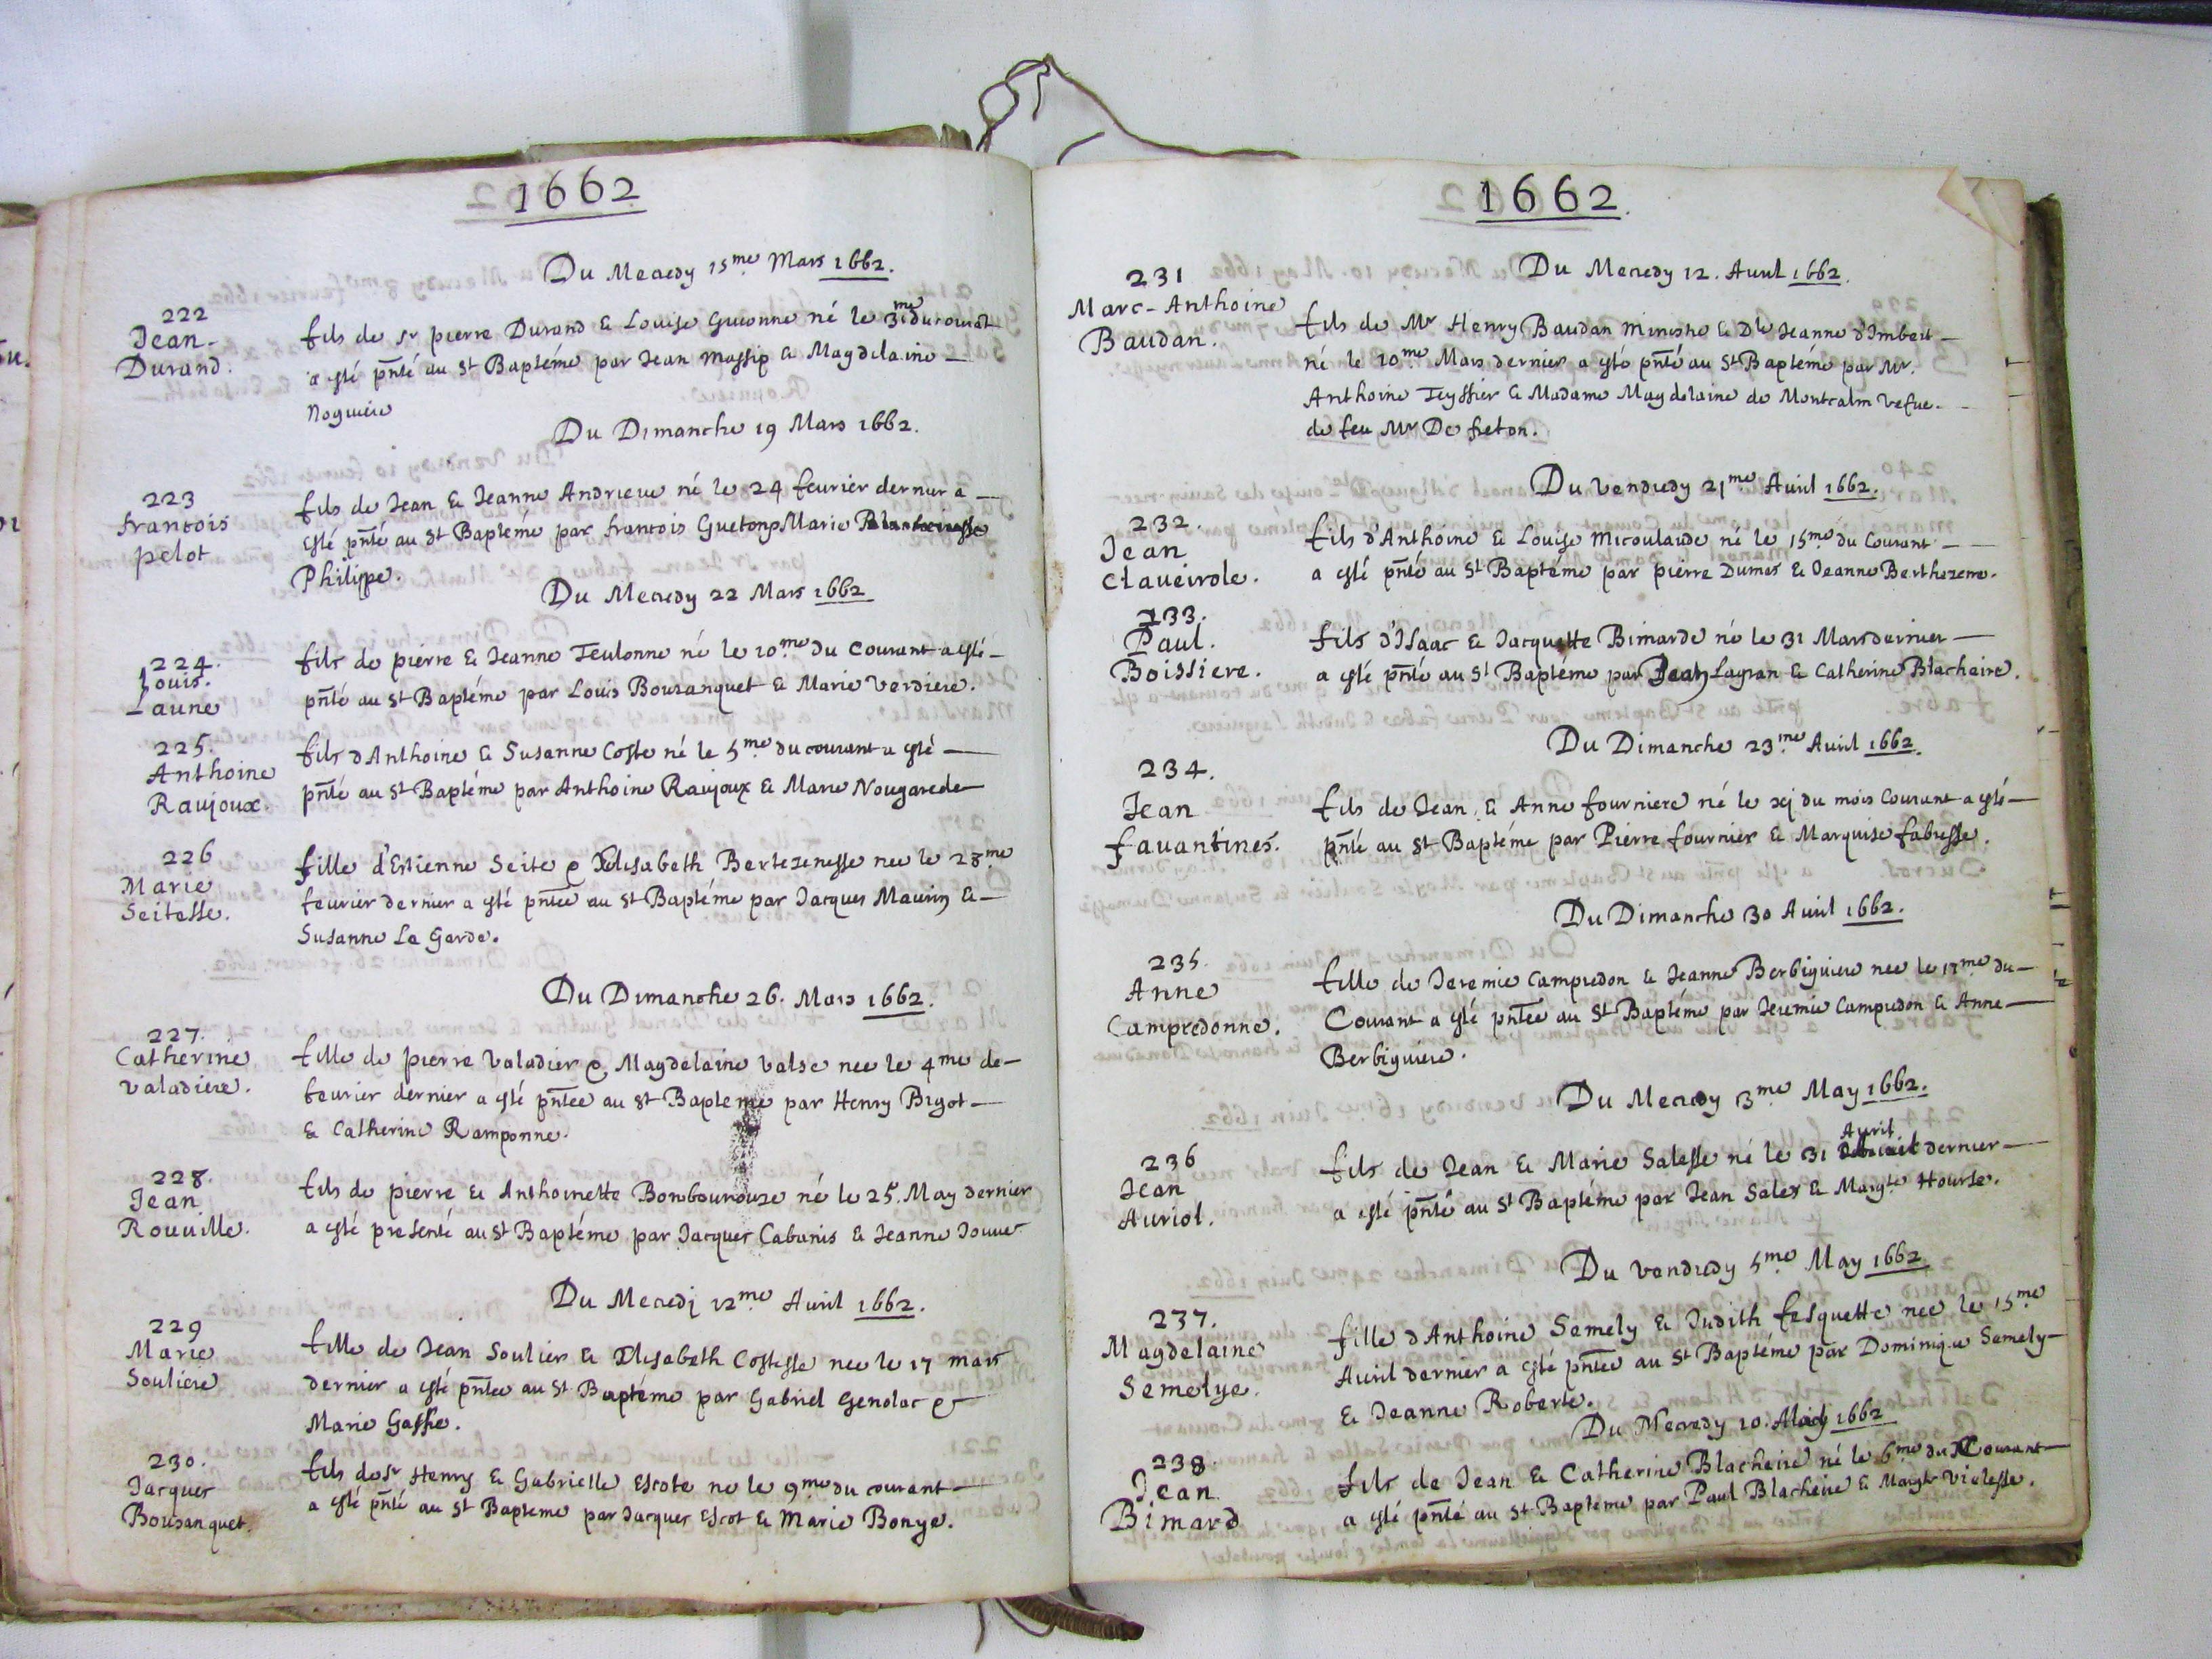 1662
Du Mecredy 15me Mars 1662.
222
Jean
Durand.
fils de Sr pierre Durand & Louise Guionne né le 3me du courat
a esté pñté au St Baptéme par Jean Massip & Magdelaine
Noguiere
Du Dimanche 19 Mars 1662.
223
francois
pelot
fils de Jean & Jeanne Andrieue né le 24 feurier dernier a
esté pñté au St Baptéme par francois Gueton & Marie
Philippe.
Du Mecredy 22 Mars 1662
224.
Louis.
Laune
fils de pierre & Jeanne Teulonne né le 10.me du Courant a esté
pñté au St Baptéme par Louis Bousanquet & Marie Verdiere.
225.
Anthoine
Raujoux.
fils d'Anthoine & Susanne Coste né le 5me du courant a esté
pñté au St Baptéme par Anthoine Raujoux & Marie Nougarede
226
Marie
Seitesse.
fille d'Estienne Seite & Elisabeth Bertezenesse nee le 28me
feurier dernier a esté pñtée au St Baptéme par Jacques Maurin &
Susanne La Garde.
Du Dimanche 26. Mars 1662.
227.
Catherine
Valadiere.
fille de pierre Valadier & Magdelaine Valde nee le 4me de
feurier dernier a esté pñtee au St Bapteme par Henry Bigot
& Catherine Ramponne.
228.
Jean
Rouuille.
fils de pierre & Anthoinette Bombounouze né le 25. May dernier
a esté presenté au St Baptéme par Jacques Cabanis & Jeanne Jouue
Du Mecredj 12me Auril 1662.
229
Marie
Souliere
fille de Jean Soulier & Elisabeth Costesse nee le 17 mars
dernier a esté pñtee au St Baptéme par Gabriel Genolac &
Marie Gasse.
230.
Jacques
Bousanquet.
fils de Sr Henry & Gabrielle Escote ne le 9me du courant
a esté pñté au St Bapteme par Jacques Escot & Marie Bonye.
1662.
Du Mecredy 12. Auril 1662.
231
Marc-Anthoine
Baudan.
fils de Mr Henry Baudan Ministre & Dle Jeanne d'Imbert
né le 10me Mars dernier a esté pñté au St Baptéme par Mr.
Anthoine Teyssier & Madame Magdelaine de Montcalm vefue
de feu Mr De freton.
Du Vendredy 21me Auril 1662.
232.
Jean
Claueirole.
fils d'Anthoine & Louise Micoulaude né le 15me du Courant
a esté pñté au St Baptéme par pierre Dumas & Jeanne Berthezene.
233.
Paul.
Boissiere.
fils d'Isaac & Jacquette Bimarde né le 31 Mars dernier
a esté pñté au St Baptéme par Jean Layran & Catherine Blacheire.
Du Dimanche 23me Auril 1662.
234.
Jean
fauantines.
fils de Jean, & Anne fourniere né le xj du mois Courant a esté
pñté au St Baptéme par Pierre fournier & Marquise fabresse.
Du Dimanche 30 Auril 1662.
235.
Anne
Campredonne.
fille de Jeremie Campredon & Jeanne Berbiguiere nee le 17me du
Courant a esté pñtee au St Baptéme par Jeremie Campredon & Anne
Berbiguiere.
Du Mecredy 3me May 1662.
236
Jean
Auriol.
Auril
fils de Jean & Marie Salesse né le 31 dernier
a esté pñté au St Baptéme par Jean Sales & Margte Hourse.
Du Vendredy 5me May 1662.
237.
Magdelaine
Semelye.
fille d'Anthoine Semely & Judith fesquette nee le 15me
Auril dernier a esté pñtee au St Baptéme par Dominique Semely
& Jeanne Roberte.
Du Mecredy 10. May 1662
238.
Jean
Bimard
fils de Jean & Catherine Blacheire né le 6me du Courant
a esté pñté au St Bapteme par Paul Blacheire & Margte Violesse.